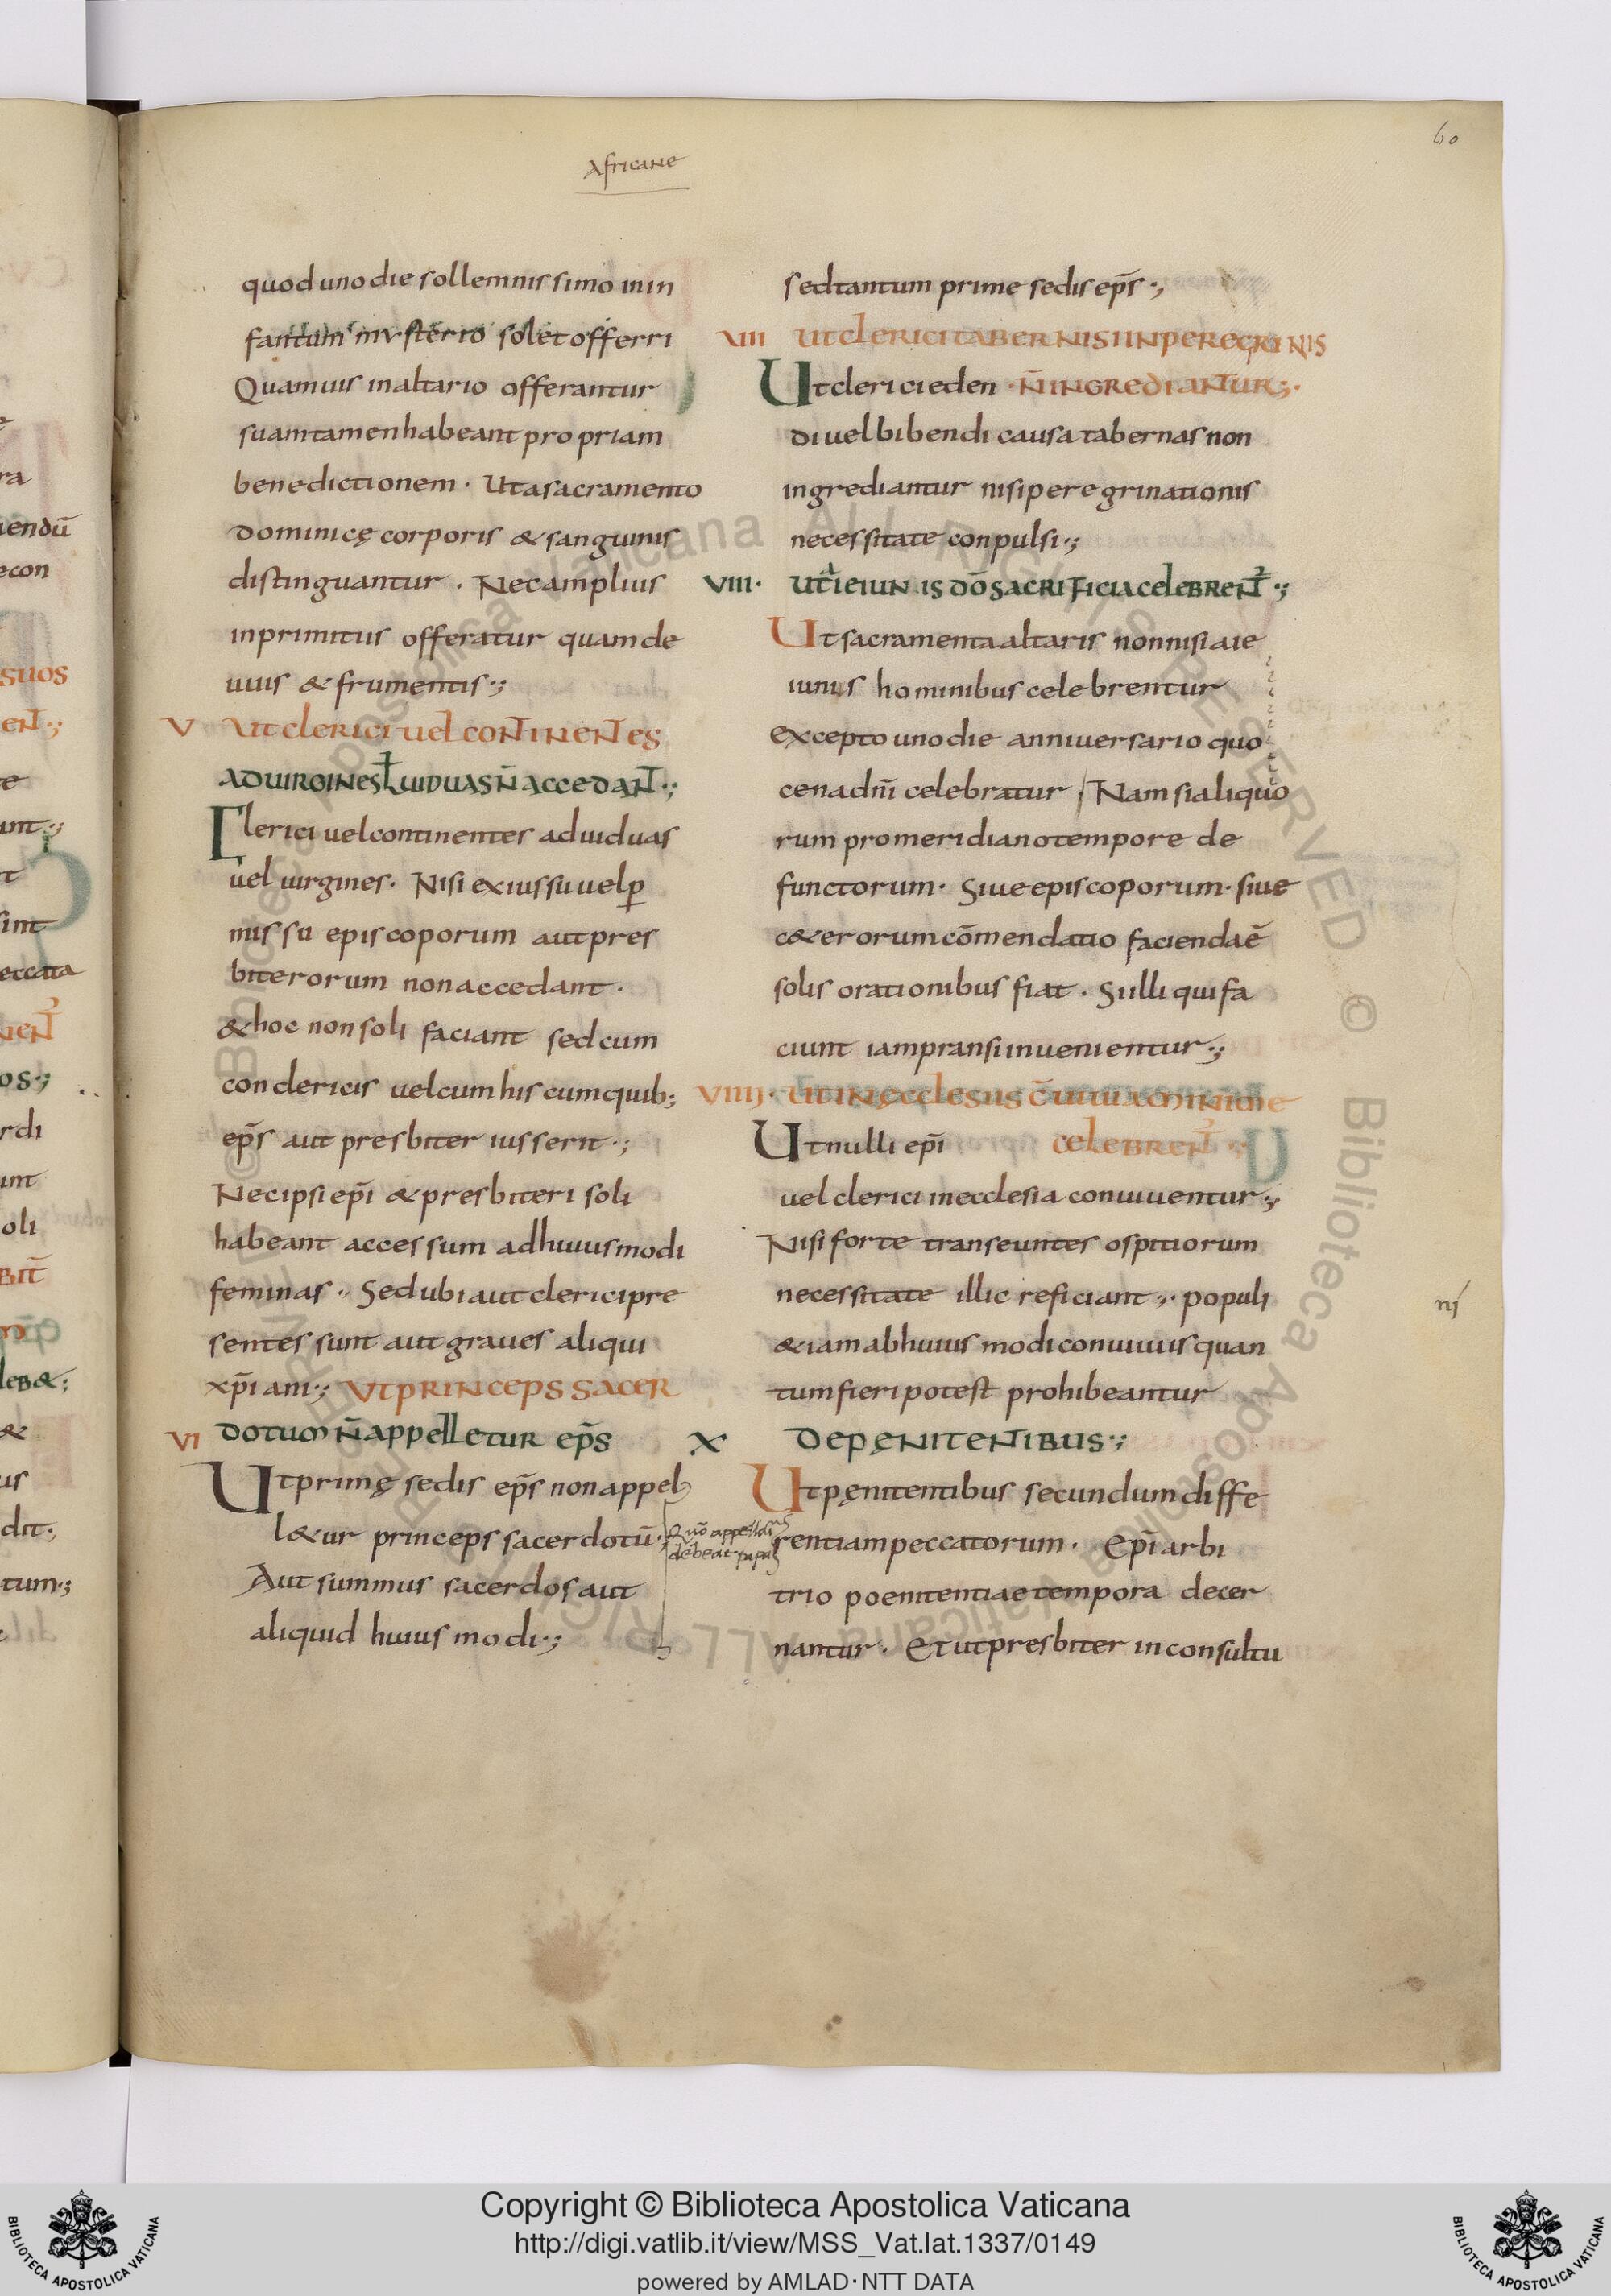 Africane
60
quod uno die sollemnissimo in in
fantum mysterio solet offerri
Quamuis in altario offerantur
suam tamen habeant propriam
benedictionem · Ut a sacramento
dominicę corporis & sanguinis
distinguantur . Nec amplius
in primitus offeratur quam de
uuis & frumentis·;
V Ut clerici uel continentes
ad uirgines ł uiduas n̄ accedant·;
Clerici uel continentes ad uiduas
uel uirgines · Nisi ex iussu uel ꝑ
missu episcoporum aut pres
biterorum non accedant ·
& hoc non soli faciant sed cum
conclericis uel cum his cum quib;
ep̄s aut presbiter iusserit·;
Nec ipsi ep̄i & presbiteri soli
habeant accessum ad huiusmodi
feminas · Sed ubi aut clerici pre
sentes sunt aut graues aliqui
xp̄iani·; Ut princeps sacer
VI dotum n̄ appelletur ep̄s
Ut primę sedis ep̄s non appel
l&ur princeps sacerdotū·;
Aut summus sacerdos aut
aliquid huiusmodi·;
debeat papa
sed tantum prime sedis ep̄s·;
VIII Ut clerici tabernis in peregrinis
Ut clerici eden · n̄ ingrediantur;·
di uel bibendi causa tabernas non
ingrediantur nisi peregrinationis
necessitate conpulsi·;
VIII· Ut a ieiunis dō sacrificia celebrent·;
Ut sacramenta altaris non nisi a ie
iunis hominibus celebrentur
excepto uno die anniuersario quo
cena dn̄i celebratur / Nam si aliquo
rum promeridiano tempore de
functorum · Siue episcoporum · siue
c&erorum cōmendatio facienda ē
solis orationibus fiat · Si illi qui fa
ciunt iam pransi inuenientur·;
VIIII· Ut in ęcclesiis cūiuia minime
Ut nulli ep̄i celebrent·;
uel clerici in ecclesia conuiuentur·;
Nisi forte transeuntes ospitiorum
necessitate illic reficiant;· populi
&iam ab huius modi conuiuiis quan
tum fieri potest prohibeantur
X De pęnitentibus·;
Ut pęnitentibus secundum diffe
rentiam peccatorum · Ep̄i arbi
trio poenitentiae tempora decer
nantur · Et ut presbiter inconsultu
Copyright © Biblioteca Apostolica Vaticana
http://digi.vatlib.it/view/MSS_Vat.lat.1337/0149
powered by AMLAD·NTT DATA
BIBLIOTECA APOSTOLICA VATICANA
BIBLIOTECA APOSTOLICA VATICANA